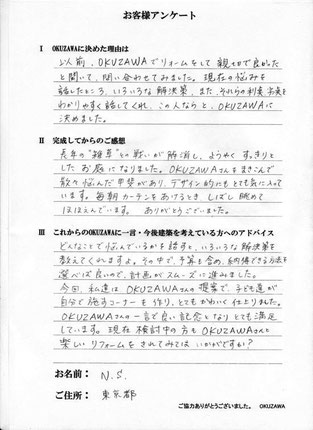 お客様アンケート
I OKUZAWAに決めた理由は
友人宅が、OKUZAWAでリフォームをして親切で良かった
と聞いて、問い合わせてみました。現在の悩みを
話したところ、いろいろな解決策、また、それらの利害、実質を
わかりやすく話してくれ、この人ならと、OKUZAWAに
決めました。
II 完成してからのご感想
長年の"雑草"との戦いが解消し、ようやくすっきりと
したお庭になりました。OKUZAWAさんをまきこんで
散々悩んだ甲斐があり、デザイン的にもとても気に入って
います。毎朝カーテンをあけるときしばし眺めて
ほほえんでいます。ありがとうございました。
III これからのOKUZAWAに一言・今後建築を考えている方へのアドバイス
どんなことで悩んでいるかを話すと、いろいろな解決策を
教えてくれますよ。その中で、予算を含め、納得できる方法を
選べば良いので、計画がスムーズに進みました。
今回、私達はOKUZAWAさんの提案で、子ども達が
自分で施すコーナーを作り、とてもかわいく仕上りました。
OKUZAWAさんの一言で良い記念となりとても満足
しています。現在検討中の方もOKUZAWAさんと
楽しいリフォームをされてみてはいかがですか?
お名前: N.S.
ご住所: 東京都
ご協力ありがとうございました。 OKUZAWA